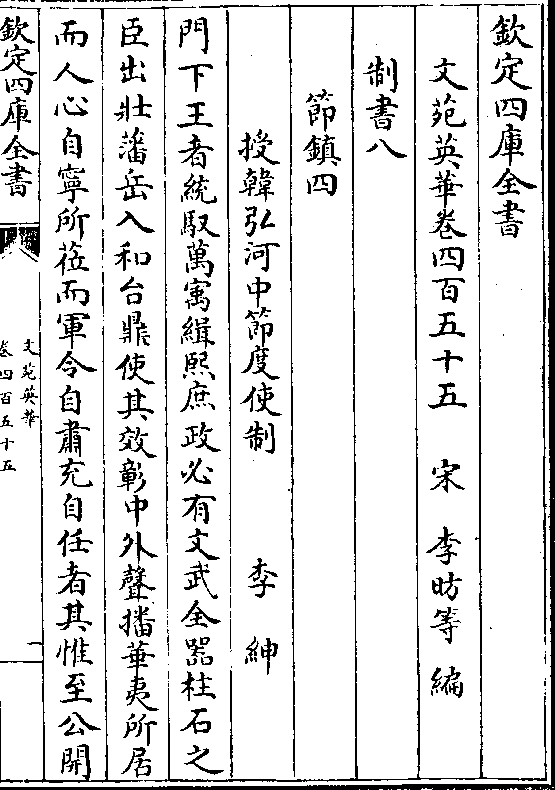 欽定四庫全書
文苑英華卷四百五十五 宋 李昉等 編
制書八
節鎮四
授韓弘河中節度使制 李紳
門下王者統馭萬寓緝熙庶政必有文武全器柱石之
臣出壯藩岳入和台鼎使其效彰中外聲播華夷所居
而人心自寧所莅而軍令自肅充自任者其惟至公開
欽定四庫全書
文苑英華
卷四百五十五
一